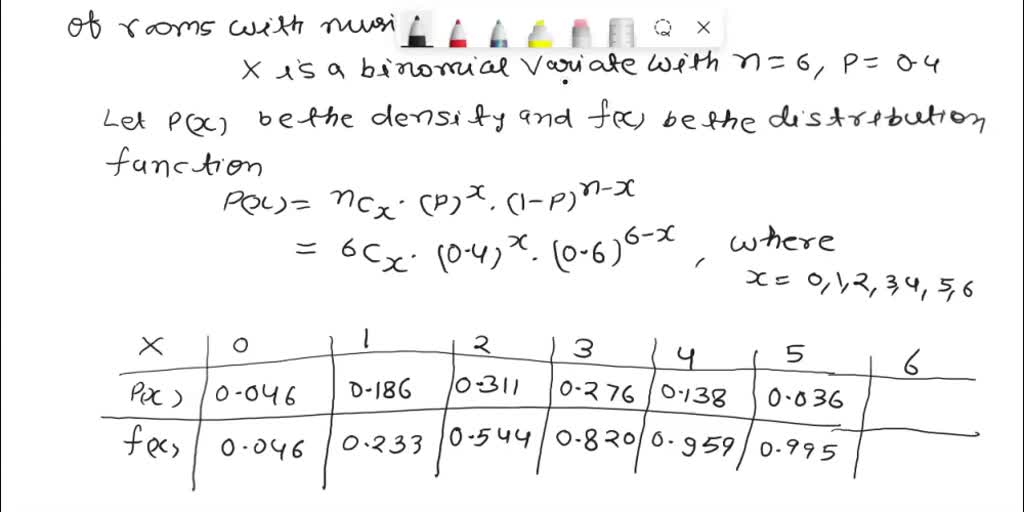 of rooms with
X is a binomial variate with n=6, P= 0.4
Let P(x) be the density and f(x) be the distribution
function
P(x)= nCx · (P)^x · (1-P)^n-x
= 6Cx · (0.4)^x · (0.6)^6-x , where
x= 0,1,2,3,4,5,6
X 0 1 2 3 4 5 6
P(x) 0.046 0.186 0.311 0.276 0.138 0.036
f(x) 0.046 0.233 0.544 0.820 0.959 0.995